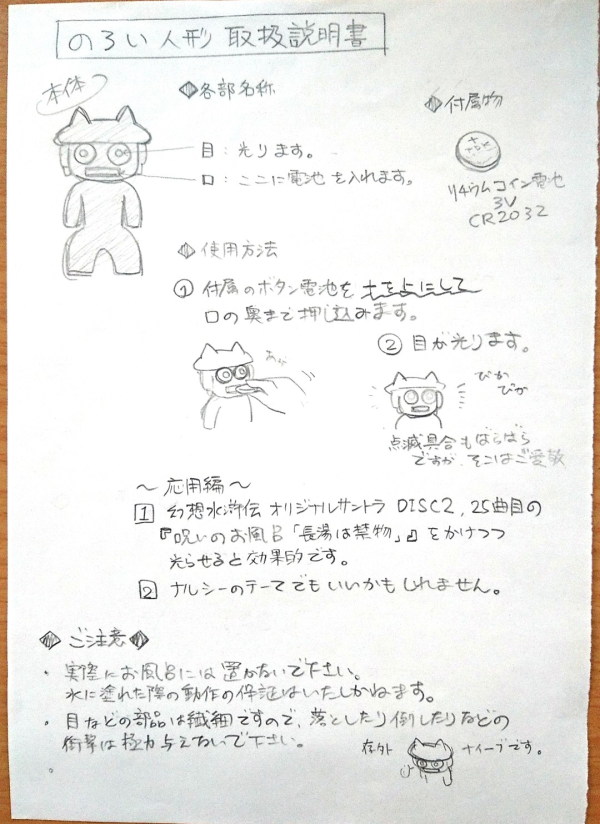 のろい人形 取扱説明書
本体
◈各部名称
◈付属物
目：光ります。
口：ここに電池を入れます。
リチウムコイン電池
3V
CR2032
◈使用方法
① 付属のボタン電池を +を上にして
口の奥まで押し込みます。
② 目が光ります。
ぴか
ぴか
点滅具合もばらばら
ですが、そこはご愛敬
～応用編～
1 幻想水滸伝 オリジナルサントラ DISC2, 25曲目の
『呪いのお風呂「長湯は禁物」』をかけつつ
光らせると効果的です。
2 ナルシーのテーマでもいいかもしれません。
◈ご注意◈
・実際にお風呂には置かないで下さい。
水に塗れた際の動作の保証はいたしかねます。
・目などの部品は繊細ですので、落としたり倒したりなどの
衝撃は極力与えないで下さい。
存外 ナイーブです。